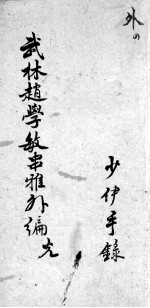 外の
武林趙學敏串雅外編 完
少伊手錄